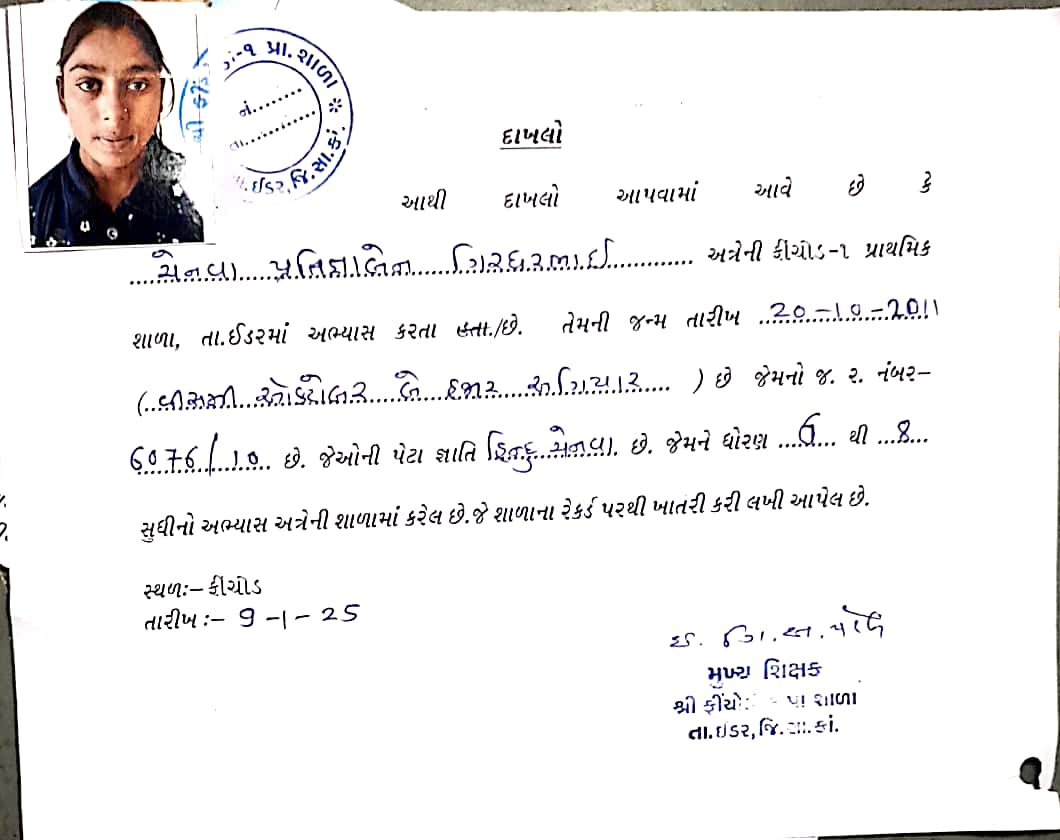 પ્રા.શાળા *
નં.........
તા............
ઈડર,જિ.સા.કાં.
દાખલો
આથી દાખલો આપવામાં આવે છે કે
સેનવા પ્રતિજ્ઞાબેન ગિરધરભાઈ અત્રેની ફીંચોડ-૧ પ્રાથમિક
શાળા, તા.ઈડરમાં અભ્યાસ કરતા હતા./છે. તેમની જન્મ તારીખ 20-10-2011
( વીસમી ઓક્ટોબર બે હજાર અગિયાર ) છે જેમનો જ. ર. નંબર–
6076/10 છે. જેઓની પેટા જ્ઞાતિ હિન્દુ સેનવા છે. જેમને ધોરણ 6 થી 8
સુધીનો અભ્યાસ અત્રેની શાળામાં કરેલ છે.જે શાળાના રેકર્ડ પરથી ખાતરી કરી લખી આપેલ છે.
સ્થળઃ– ફીંચોડ
તારીખ :– 9-1-25
મુખ્ય શિક્ષક
શ્રી ફીંચો શાળા
તા.ઇડર,જિ.સા.કાં.